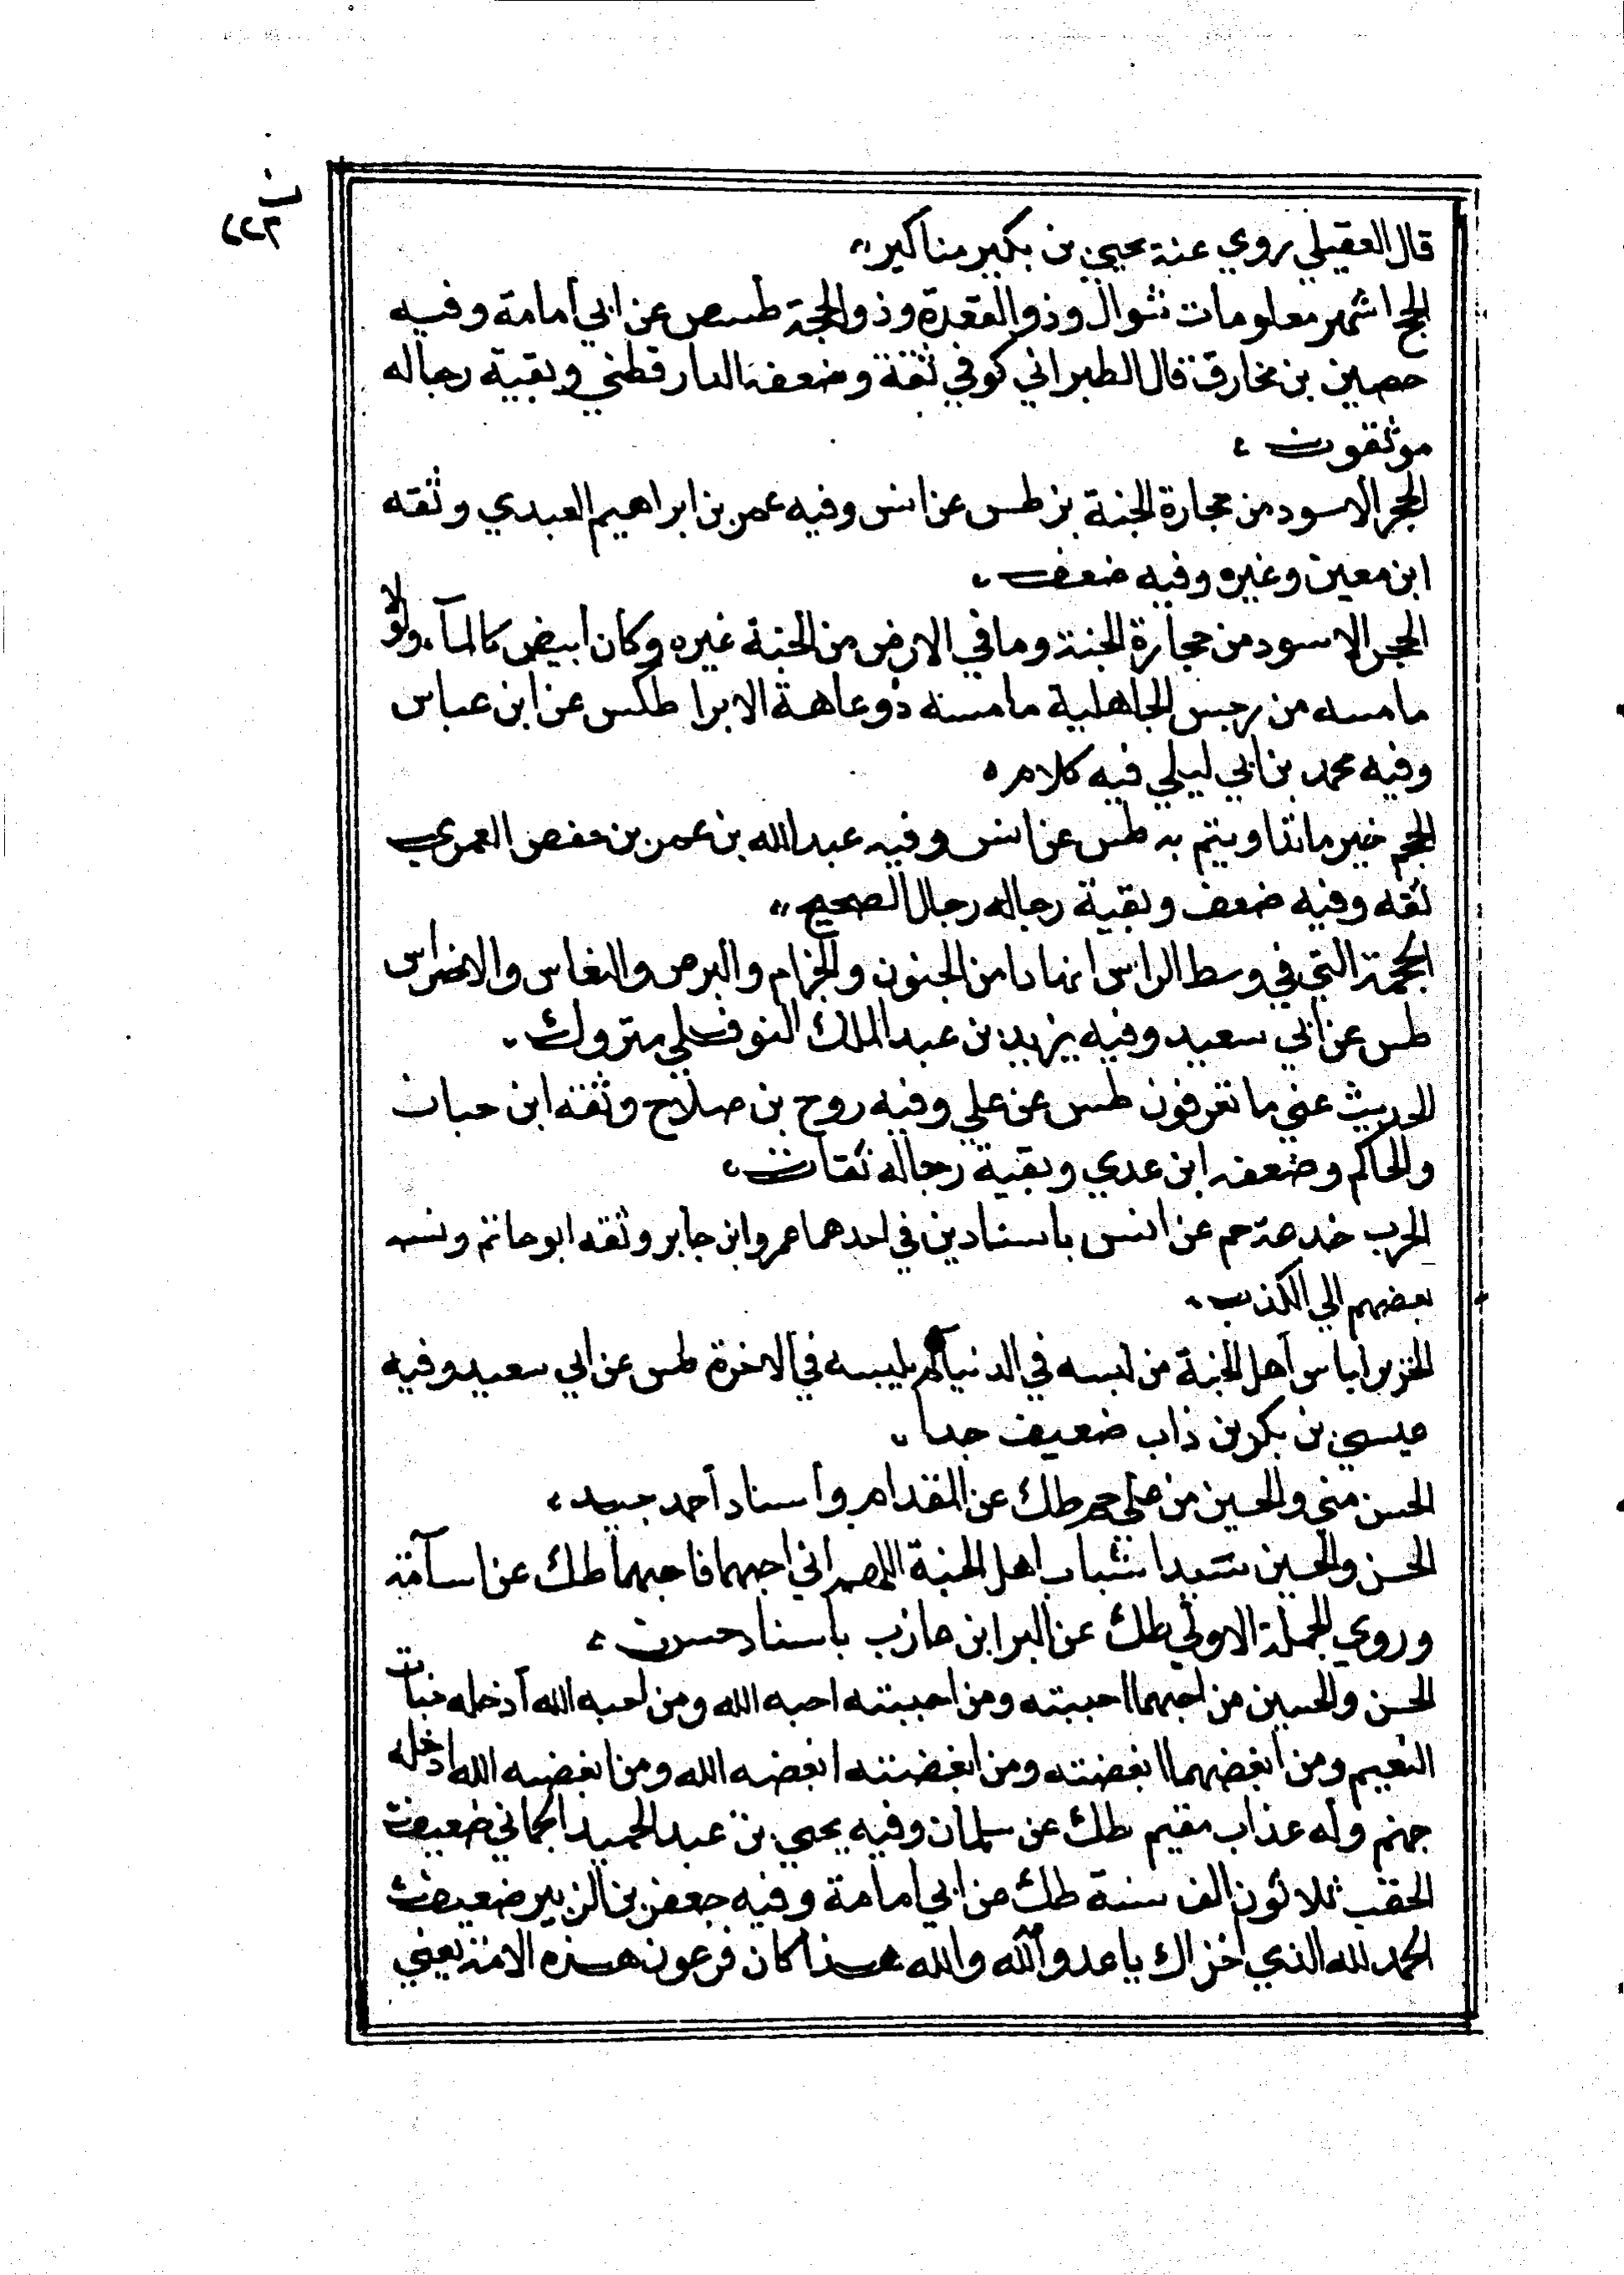 ن
٢٢٣
قال العقيلي روي عنه يحيي بن بكير مناكير
الحج اشهر معلومات شوال وذو القعدة وذو الحجة طسص عن ابي أمامة وفيه
حصين بن مخارق قال الطبراني كوفي ثقة وضعفه الدارقطني وبقية رجاله
موثقون
الحجر الاسود من حجارة الجنة بز طس عن انس وفيه عمر بن ابراهيم العبدي وثقه
ابن معين وغيره وفيه ضعف
الحجر الاسود من حجارة الجنة وما في الارض من الجنة غيره وكان أبيض كالمآء ولولا
ما مسه من رجس الجاهلية ما مسه ذو عاهة الا برا طكس عن ابن عباس
وفيه محمد بن ابي ليلي فيه كلام
الحجم خير ما تداويتم به طس عن انس وفيه عبد الله بن عمر بن حفص العمري
ثقه وفيه ضعف وبقية رجاله رجال الصحيح
الحجمة التي في وسط الراس انها دا من الجنون والجزام والبرص والنعاس والاضراس
طس عن ابي سعيد وفيه يزيد بن عبد الملك النوفلي متروك
الحديث عني ما تعرفون طس عن علي وفيه روح بن صلاح وثقه ابن حبان
والحاكم وضعفه ابن عدي وبقية رجاله ثقات
الحرب خدعة حم عن انس باسنادين في احدهما عمرو ابن جابر وثقه ابو حاتم ونسبه
بعضهم الي الكذب
الحرير لباس أهل الجنة من لبسه في الدنيا لم يلبسه في الاخرة طس عن ابي سعيد وفيه
عيسي بن بكر بن ذاب ضعيف جدا
الحسن مني والحسين من علي حم طك عن المقدام وأسناد أحمد جيد
الحسن والحسين سيدا شباب اهل الجنة اللهم اني احبهما فاحبهما طك عن اسآمة
وروي الجملة الاولي طك عن البرا بن عازب باسناد حسن
الحسن والحسين من احبهما احببته ومن احببته احبه الله ومن احبه الله أدخله جنات
النعيم ومن أبغضهما ابغضته ومن ابغضته ابغضه الله ومن ابغضه الله ادخله
جهنم وله عذاب مقيم طك عن سلمان وفيه يحيي بن عبد الحميد الحماني ضعيف
الحقب ثلاثون الف سنة طك عن ابي امامة وفيه جعفر بن الزبير ضعيف
الحمد لله الذي أخزاك يا عدو الله والله هذا كان فرعون هذه الامة يعني